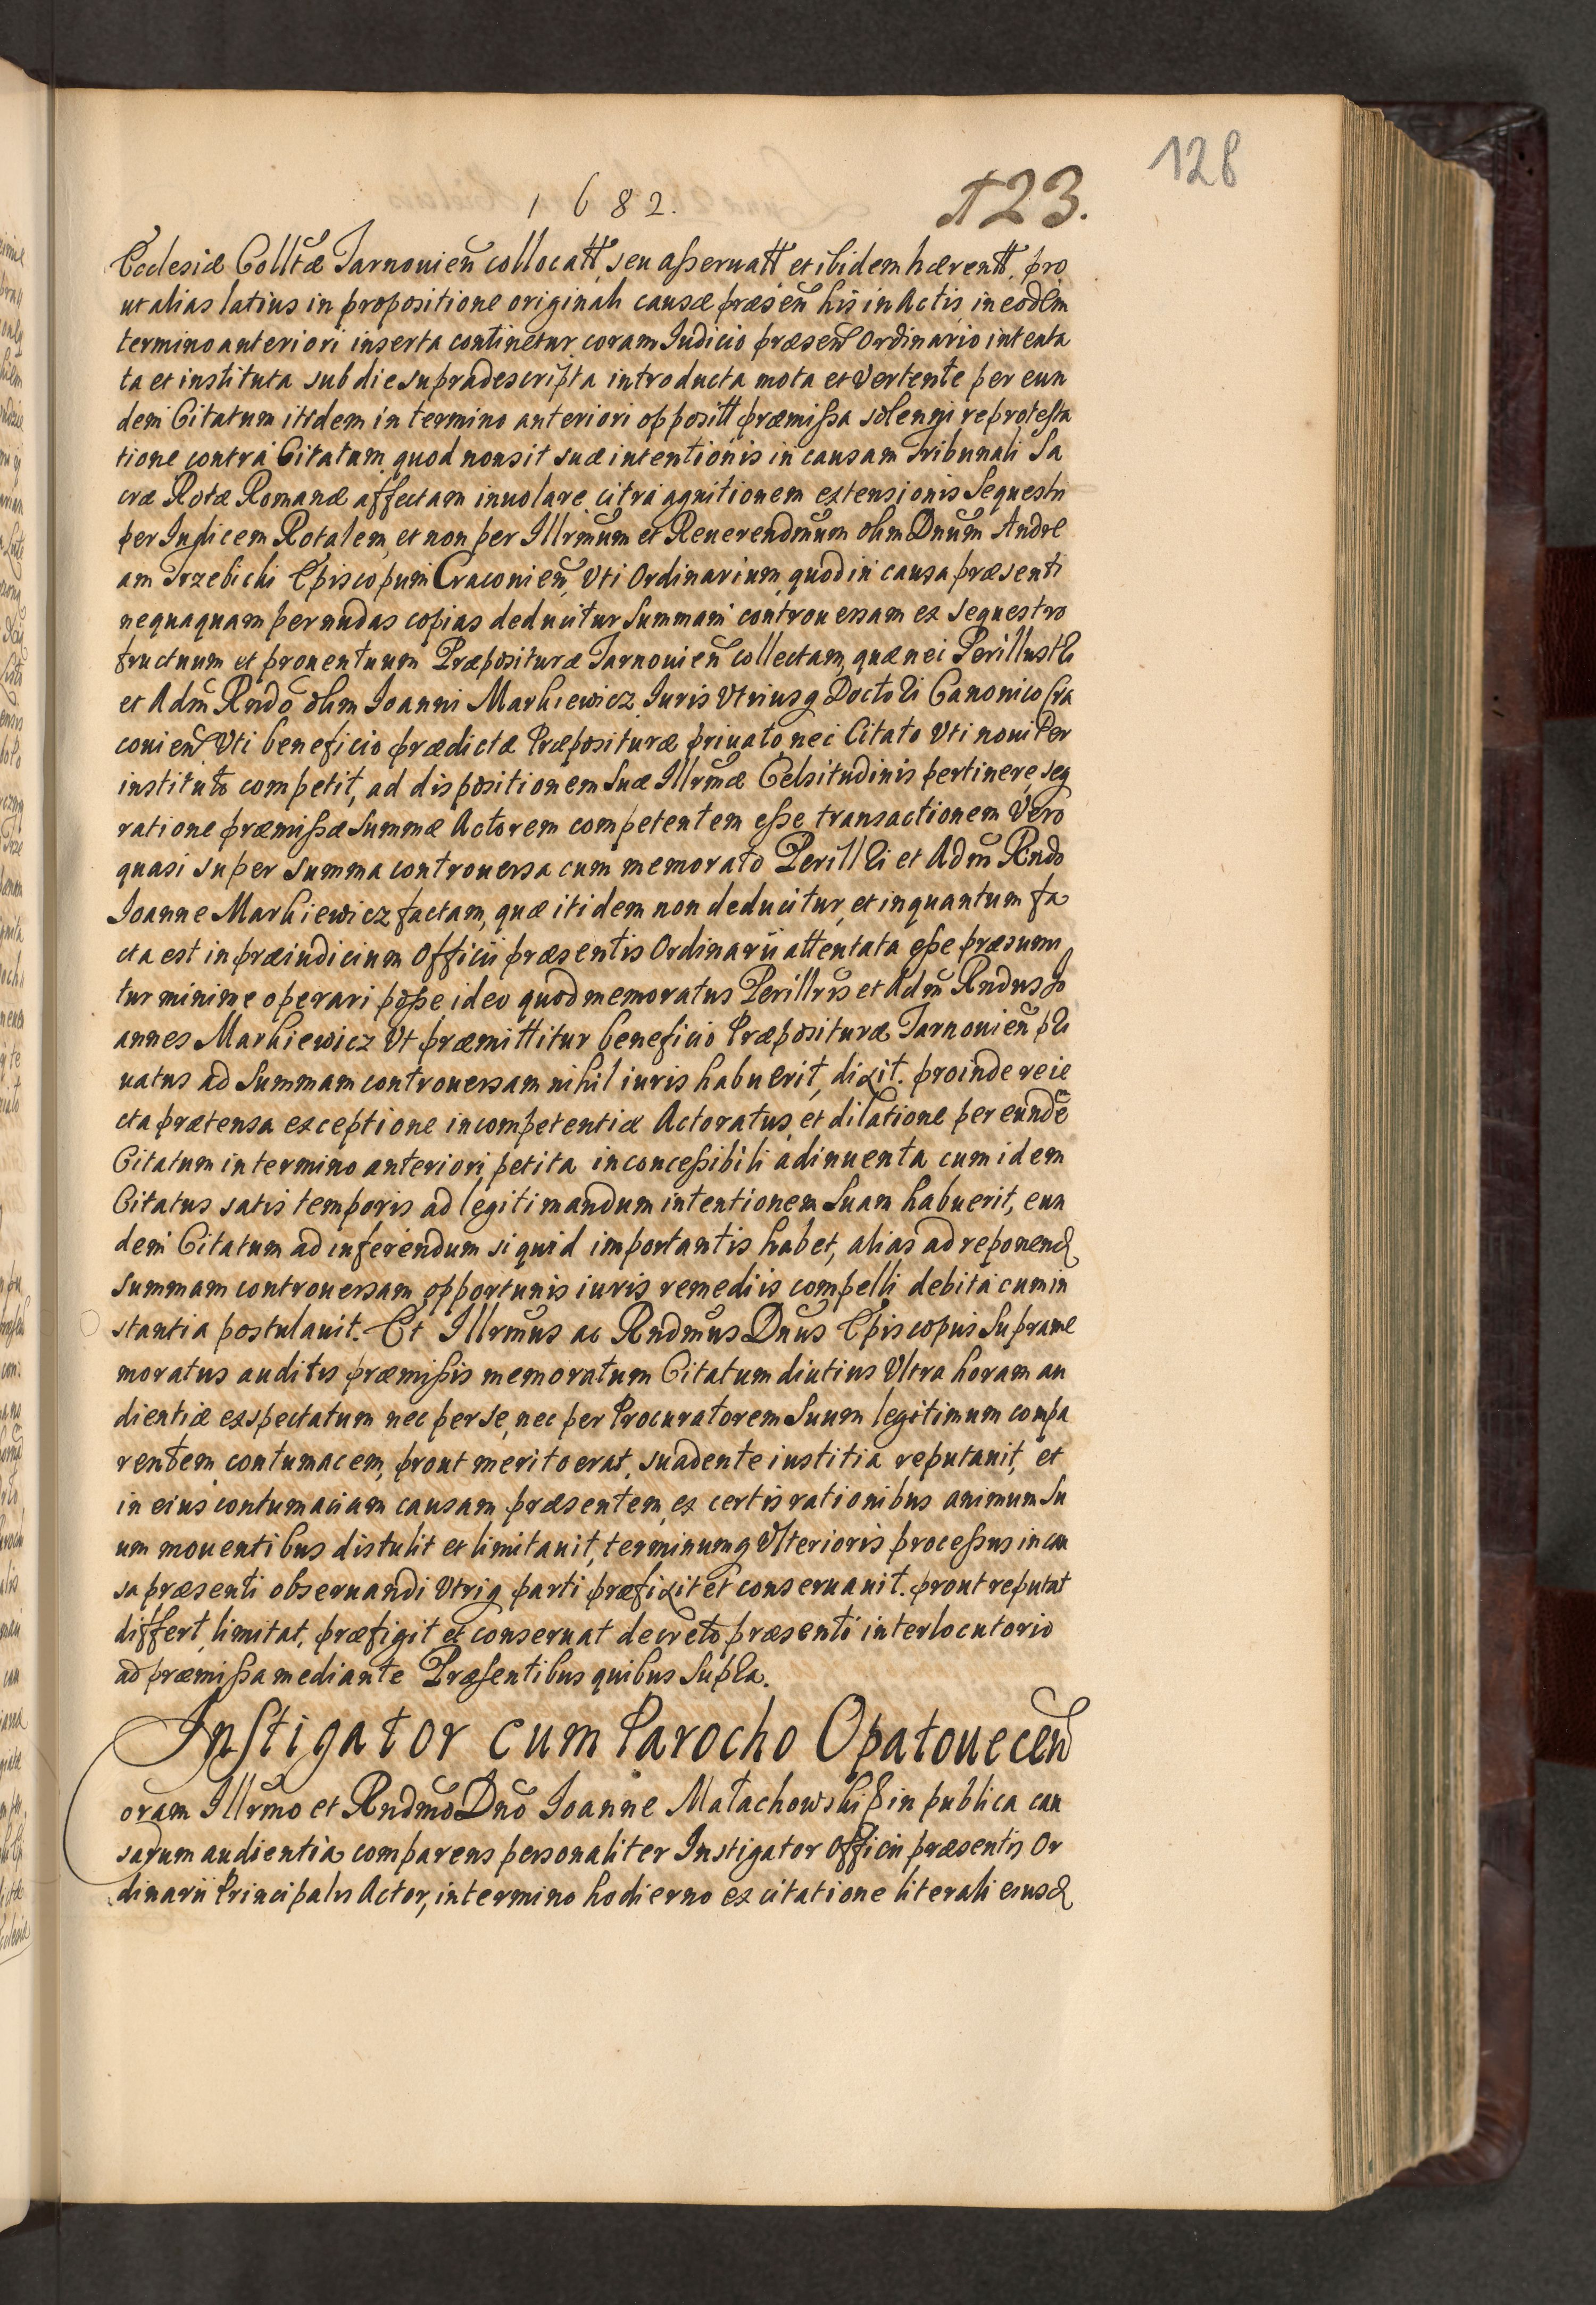 128
1682.
123.
Ecclesiæ Colltæ Tarnouien̄ collocatt, seu asseruatt et ibidem hærentt, pro
ut alias latius in propositione originali causæ præsen̄ his in Actis, in eodem
termino anteriori inserta continetur, coram Iudicio præsen̄ Ordinario intenta
ta et instituta sub die supradescripta introducta mota et Vertente per eun
dem Citatum itidem in termino anteriori opposītt præmissa solenni reprotesta
tione contra Citatum, quod non sit suæ intentionis in causam Tribunali Sa
cræ Rotæ Romanæ affectam inuolare, citra agnitionem extensionis Sequestri
per Iudicem Rotalem, et non per Illrmūm et Reuerendmūm olim Dnūm Andre
am Trzebicki Episcopum Cracouien̄, Vti Ordinarium, quod in causa præsenti
nequaquam per nudas copias deducitur Summam controuersam ex sequestro
fructuum et prouentuum Præposituræ Tarnouien̄ collectam, quæ nec Perillustri
et Adm̄ Rndo olim Ioanni Markiewicz Iuris Vtriusq Doctori Canonico Cra
couien̄ Vti beneficio prædictæ Præposituræ priuato, nec Citato Vti nouiter
instituto competit, ad dispositionem Suæ Illrmæ Celsitudinis pertinere, seq
ratione præmissæ Summæ Actorem competentem esse, transactionem Vero
quasi super summa controuersa cum memorato Perillri et Adm̄ Rndo
Ioanne Markiewicz factam, quæ itidem non deducitur, et inquantum fa
cta est in præiudicium Officii præsentis Ordinarii attentata esse præsumi
tur minime operari posse ideo quod memoratus Perillris et Adm̄ Rndus Jo
annes Markiewicz Vt præmittitur beneficio Præposituræ Tarnouien̄ pri
uatus ad Summam controuersam nihil iuris habuerit, dixit. proinde reie
cta prætensa exceptione incompetentiæ Actoratus, et dilatione per eundē
Citatum in termino anteriori petita inconcessibili adinuenta cum idem
Citatus satis temporis ad legitimandum intentionem Suam habuerit, eun
dem Citatum ad inferendum si quid importantis habet, alias ad reponend
Summam controuersam opportunis iuris remediis compelli debita cum in
stantia postulauit. Et Illrmus ac Rndmus Dnus Episcopus Suprame
moratus auditis præmissis memoratum Citatum diutius Vltra horam au
dientiæ exspectatum nec per se, nec per Procuratorem Suum legitimum compa
rentem contumacem, prout merito erat, suadente iustitia reputauit, et
in eius contumaciam causam præsentem, ex certis rationibus animum Su
um mouentibus distulit et limitauit, terminumq Vlterioris processus in cau
sa præsenti obseruandi Vtriq parti præfixit et conseruauit. prout reputat
differt, limitat, præfigit et conseruat decreto præsenti interlocutorio
ad præmissa mediante Præsentibus quibus Supra.
Instigator cum Parocho Opatouecen̄
Coram Illrmo et Rndmo Dno Ioanne Małachowski & in publica cau
sarum audientia comparens personaliter Instigator Officii præsentis Or
dinarii Principalis Actor, in termino hodierno ex citatione literali eiusd